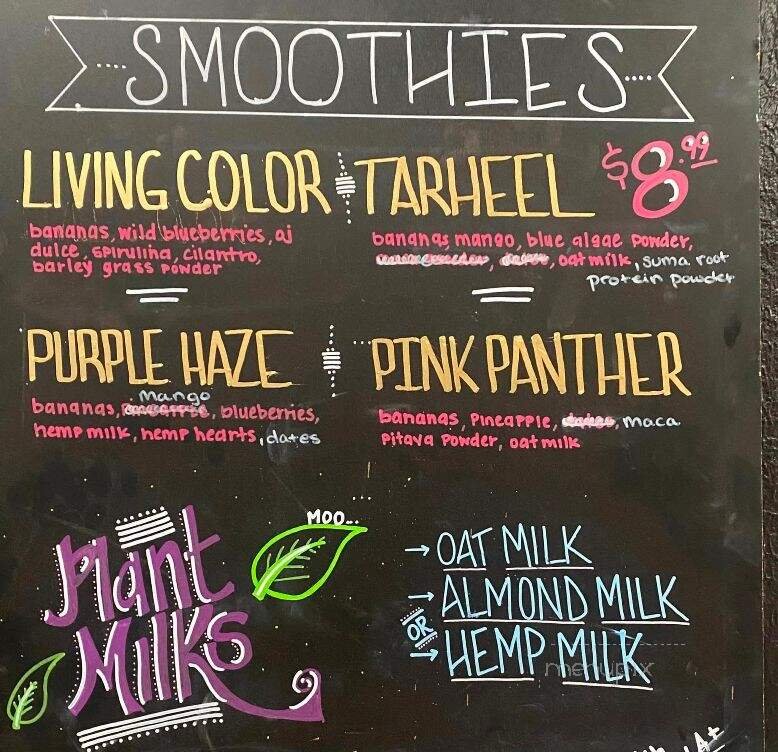 SMOOTHIES
LIVING COLOR
bananas, wild blueberries, aj
dulce, spirulina, cilantro,
barley grass powder
TARHEEL
$8.99
bananas mango, blue algae powder,
oatmilk, suma root
protein powder
PURPLE HAZE
mango
bananas, blueberries,
hemp milk, hemp hearts, dates
PINK PANTHER
bananas, pineapple, maca
pitaya powder, oatmilk
Plant
Milks
MOO...
→ OAT MILK
→ ALMOND MILK
OR
→ HEMP MILK
menupix